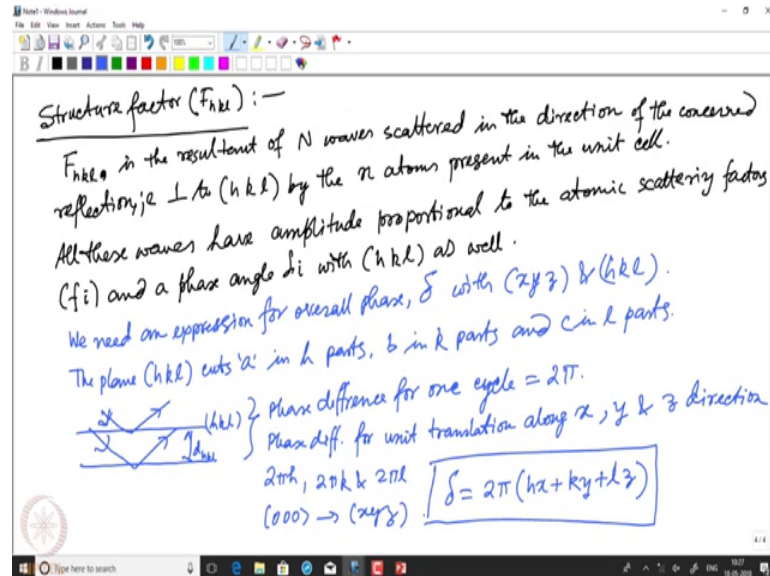 Note1 - Windows Journal
File Edit View Insert Actions Tools Help
100%
B I
Structure factor (Fhkl) :-
Fhkl, is the resultant of N waves scattered in the direction of the concerned
reflection, ie ⊥ to (hkl) by the n atoms present in the unit cell.
All these waves have amplitude proportional to the atomic scattering factors
(fi) and a phase angle δi with (hkl) as well.
We need an expression for overall phase, δ with (xyz) & (hkl).
The plane (hkl) cuts 'a' in h parts, b in k parts and c in l parts.
(hkl) } Phase diffrence for one cycle = 2π.
dhkl Phase diff. for unit translation along x, y & z direction
2πh, 2πk & 2πl
(000) → (xyz) δ = 2π(hx+ky+lz)
4/4
Type here to search
ENG
10:27
18-05-2018